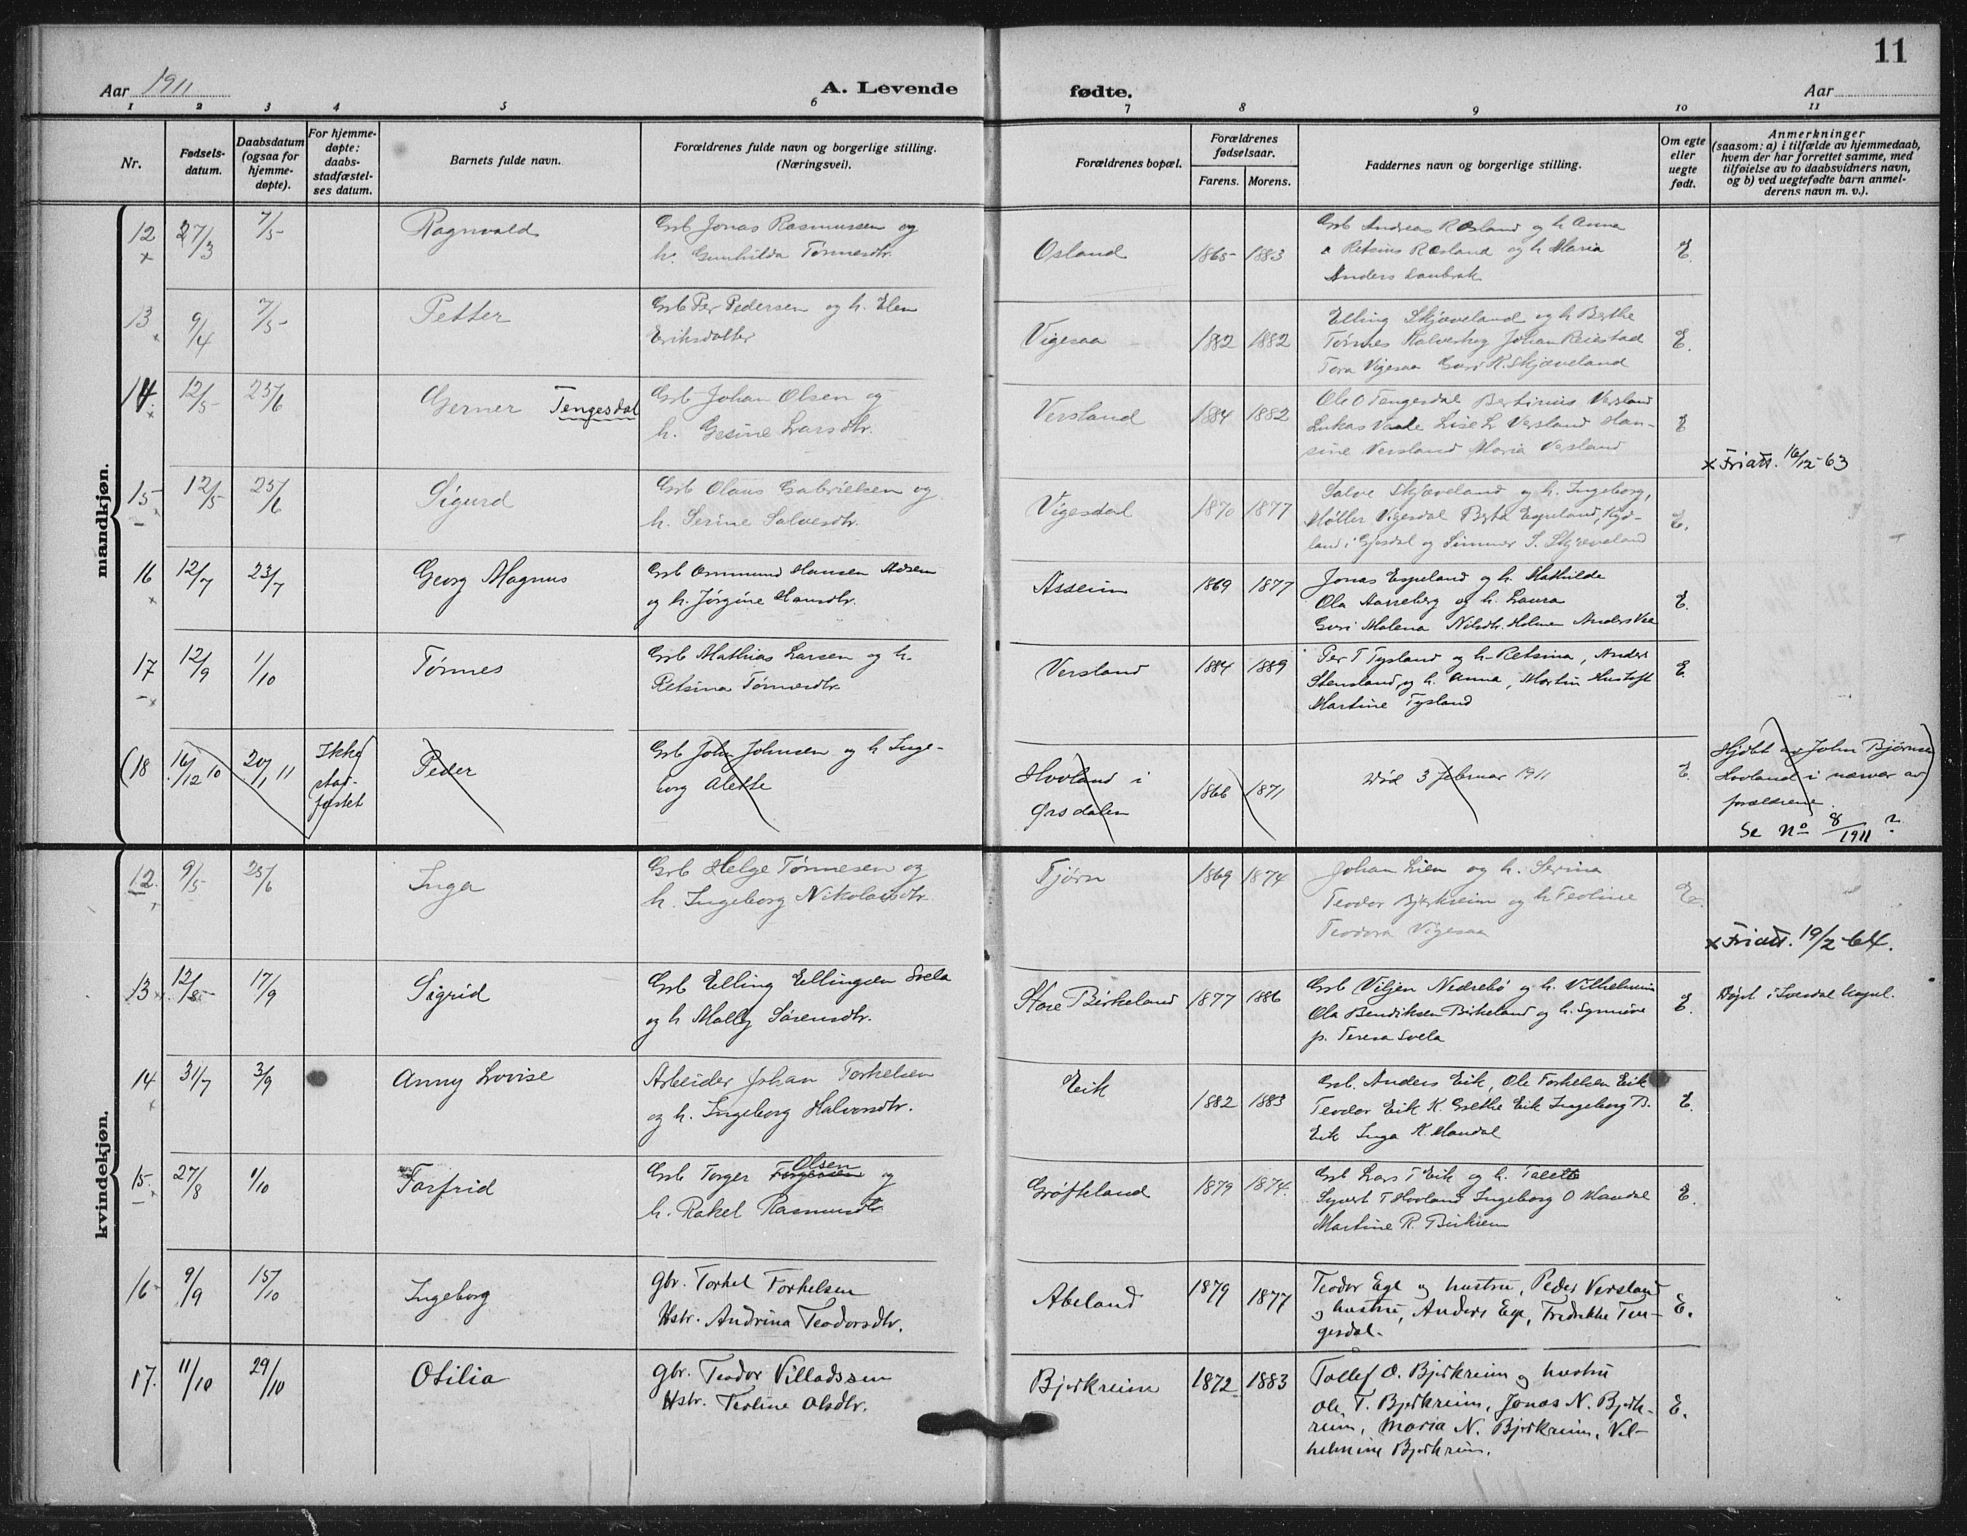 11
Aar 1911
A. Levende
fødte.
Aar
1 2 3 4 5 6 7 8 9 10 11
Nr.
Fødsels-
datum.
Daabsdatum
(ogsaa for
hjemme-
døpte).
For hjemme-
døpte:
daabs-
stadfæstel-
ses datum.
Barnets fulde navn.
Forældrenes fulde navn og borgerlige stilling.
(Næringsvei).
Forældrenes bopæl.
Forældrenes
fødselsaar.
Farens. Morens.
Faddernes navn og borgerlige stilling.
Om egte
eller
uegte
født.
Anmerkninger
(saasom: a) i tilfælde av hjemmedaab,
hvem der har forrettet samme, med
tilføielse av to daabsvidners navn,
og b) ved uegtefødte barn anmel-
derens navn m. v.).
mandkjøn.
12 27/3 7/5 Ragnvald Grb Jonas Rasmussen og
h. Gunhilda Tønnesdtr.
Osland 1865 1883
Grb Andreas Røsland og h Anna
Retsius Røsland og h Maria
Anders
E.
13 9/4 7/5 Petter Grb Per Pedersen og h. Elen
Eriksdatter
Vigesaa 1882 1882
Elling Skjæveland og h Berthe
Tønnes Johan Reiestad
Tora Vigesaa Guri K. Skjæveland
E.
14. 12/5 25/6 Gerner Tengesdal Grb Johan Olsen og
h. Gesine Larsdtr.
Versland 1884 1882
Ole O Tengesdal Bertinius Versland
Lukas Lise L Versland Han-
sine Versland Maria Versland
E
x Friatt. 16/12-63
15 12/5 25/6 Sigurd Grb Olaus Gabrielsen og
h. Serine Salvesdtr.
Vigesdal 1870 1877
Salve Skjæveland og h. Ingeborg,
Møller Vigesdal Berta Espeland, Kyd-
land i Gjesdal og S. Skjæveland
E.
16 12/7 23/7 Georg Magnus Grb Ommund Hansen
og h. Jørgine Hansdtr.
Asseim 1869 1877
Jonas Espeland og h. Mathilde
Ola og h. Laura
Guri Malena Nilsdtr. Anders
E.
17 12/9 1/10 Tønnes Grb Mathias Larsen og h.
Retsina Tønnesdtr.
Versland 1884 1889
Per T Tysland og h. Retsina, Anders
Stensland, og h. Anna, Martin Hustoft
Martine Tysland
E.
(18 16/12 10 20/1 11 Ikke
stad-
fæstet
Peder Grb John Johnsen og h Inge-
borg Alette
Hovland i
Ørsdalen
1866 1871
død 3 februar 1911
E.
Hjdbt av John Bjørnsen
Hovland i nærvær av
forældrene.
Se No 8/1911 ?
kvindekjøn.
12. 9/5 25/6 Inga Grb Helge Tønnesen og
h. Ingeborg Nikolaisdtr.
Tjørn 1869 1874
Johan Lien og h. Serina
Teodor Bjerkreim og h Teoline
Teodora Vigesaa
E.
x Friatt. 19/2-64.
13 12/8 17/9 Sigrid Grb Elling Ellingsen Svela
og h Mally Sørensdtr.
Store Birkeland 1877 1886
Grb Viljen Nedrebø og h. Vilhelmine
Ola Bendiksen Birkeland og h. Synnøve
p. Teresa Svela
E.
Døpt i Kapel.
14 31/7 3/9 Anny Lovise Arbeider Johan Torkelsen
og h. Ingeborg Halvorsdtr.
Eik 1882 1883
Grb. Anders Eik, Ole Torkelsen Eik
Teodor Eik K. Grethe Eik Ingeborg B.
Eik Inga K. Mandal
E.
15. 27/8 1/10 Torfrid Grb Torger Torgersen Olsen og
h. Rakel Rasmusdtr
Grøfteland 1879 1874.
Grb Lars T Eik og h. Talette
Syvert T Hovland Ingeborg O Mandal
Martine R. Birkrem
E.
16 9/9 15/10 Ingeborg gbr. Torkel Torkelsen
Hstr. Andrina Teodorsdtr.
Abeland 1879 1877
Teodor Ege og hustru, Peder Versland
og hustru, Anders Ege, Fredrikke Ten-
gesdal.
E.
17. 11/10 29/10 Otilia gbr. Teodor Villadssen
Hstr. Teoline Olsdtr.
Bjerkreim 1872 1883
Tollef O. Bjerkreim og hustru
Ole T. Bjerkreim, Jonas N. Bjerk-
reim, Maria N. Bjerkreim, Vil-
helmine Bjerkreim.
E.